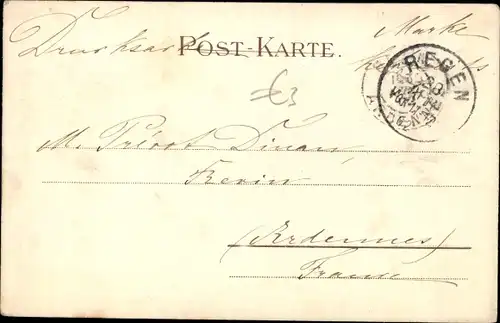 Drucksache
Marke
POST-KARTE.
REGEN
€3
M. Prévot Dinan,
Revin
(Ardennes)
France